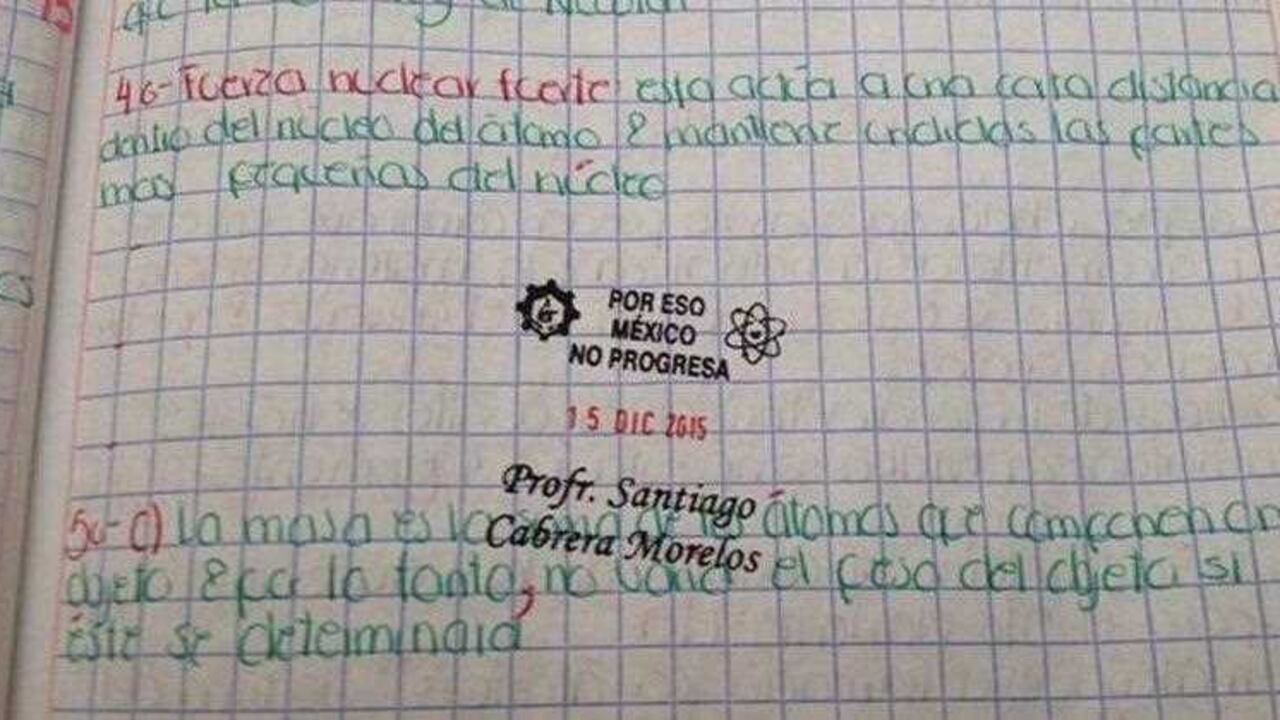 4 c- Fuerza nuclear fuerte esta actúa a una corta distancia
dentro del núcleo del átomo & mantiene unidas las partes
mas pequeñas del núcleo
POR ESO
MÉXICO
NO PROGRESA
15 DIC 2015
Profr. Santiago
Cabrera Morelos
5c- c) La masa es la de átomos que componen un
objeto & por lo tanto, no el peso del objeto si
éste se determinara